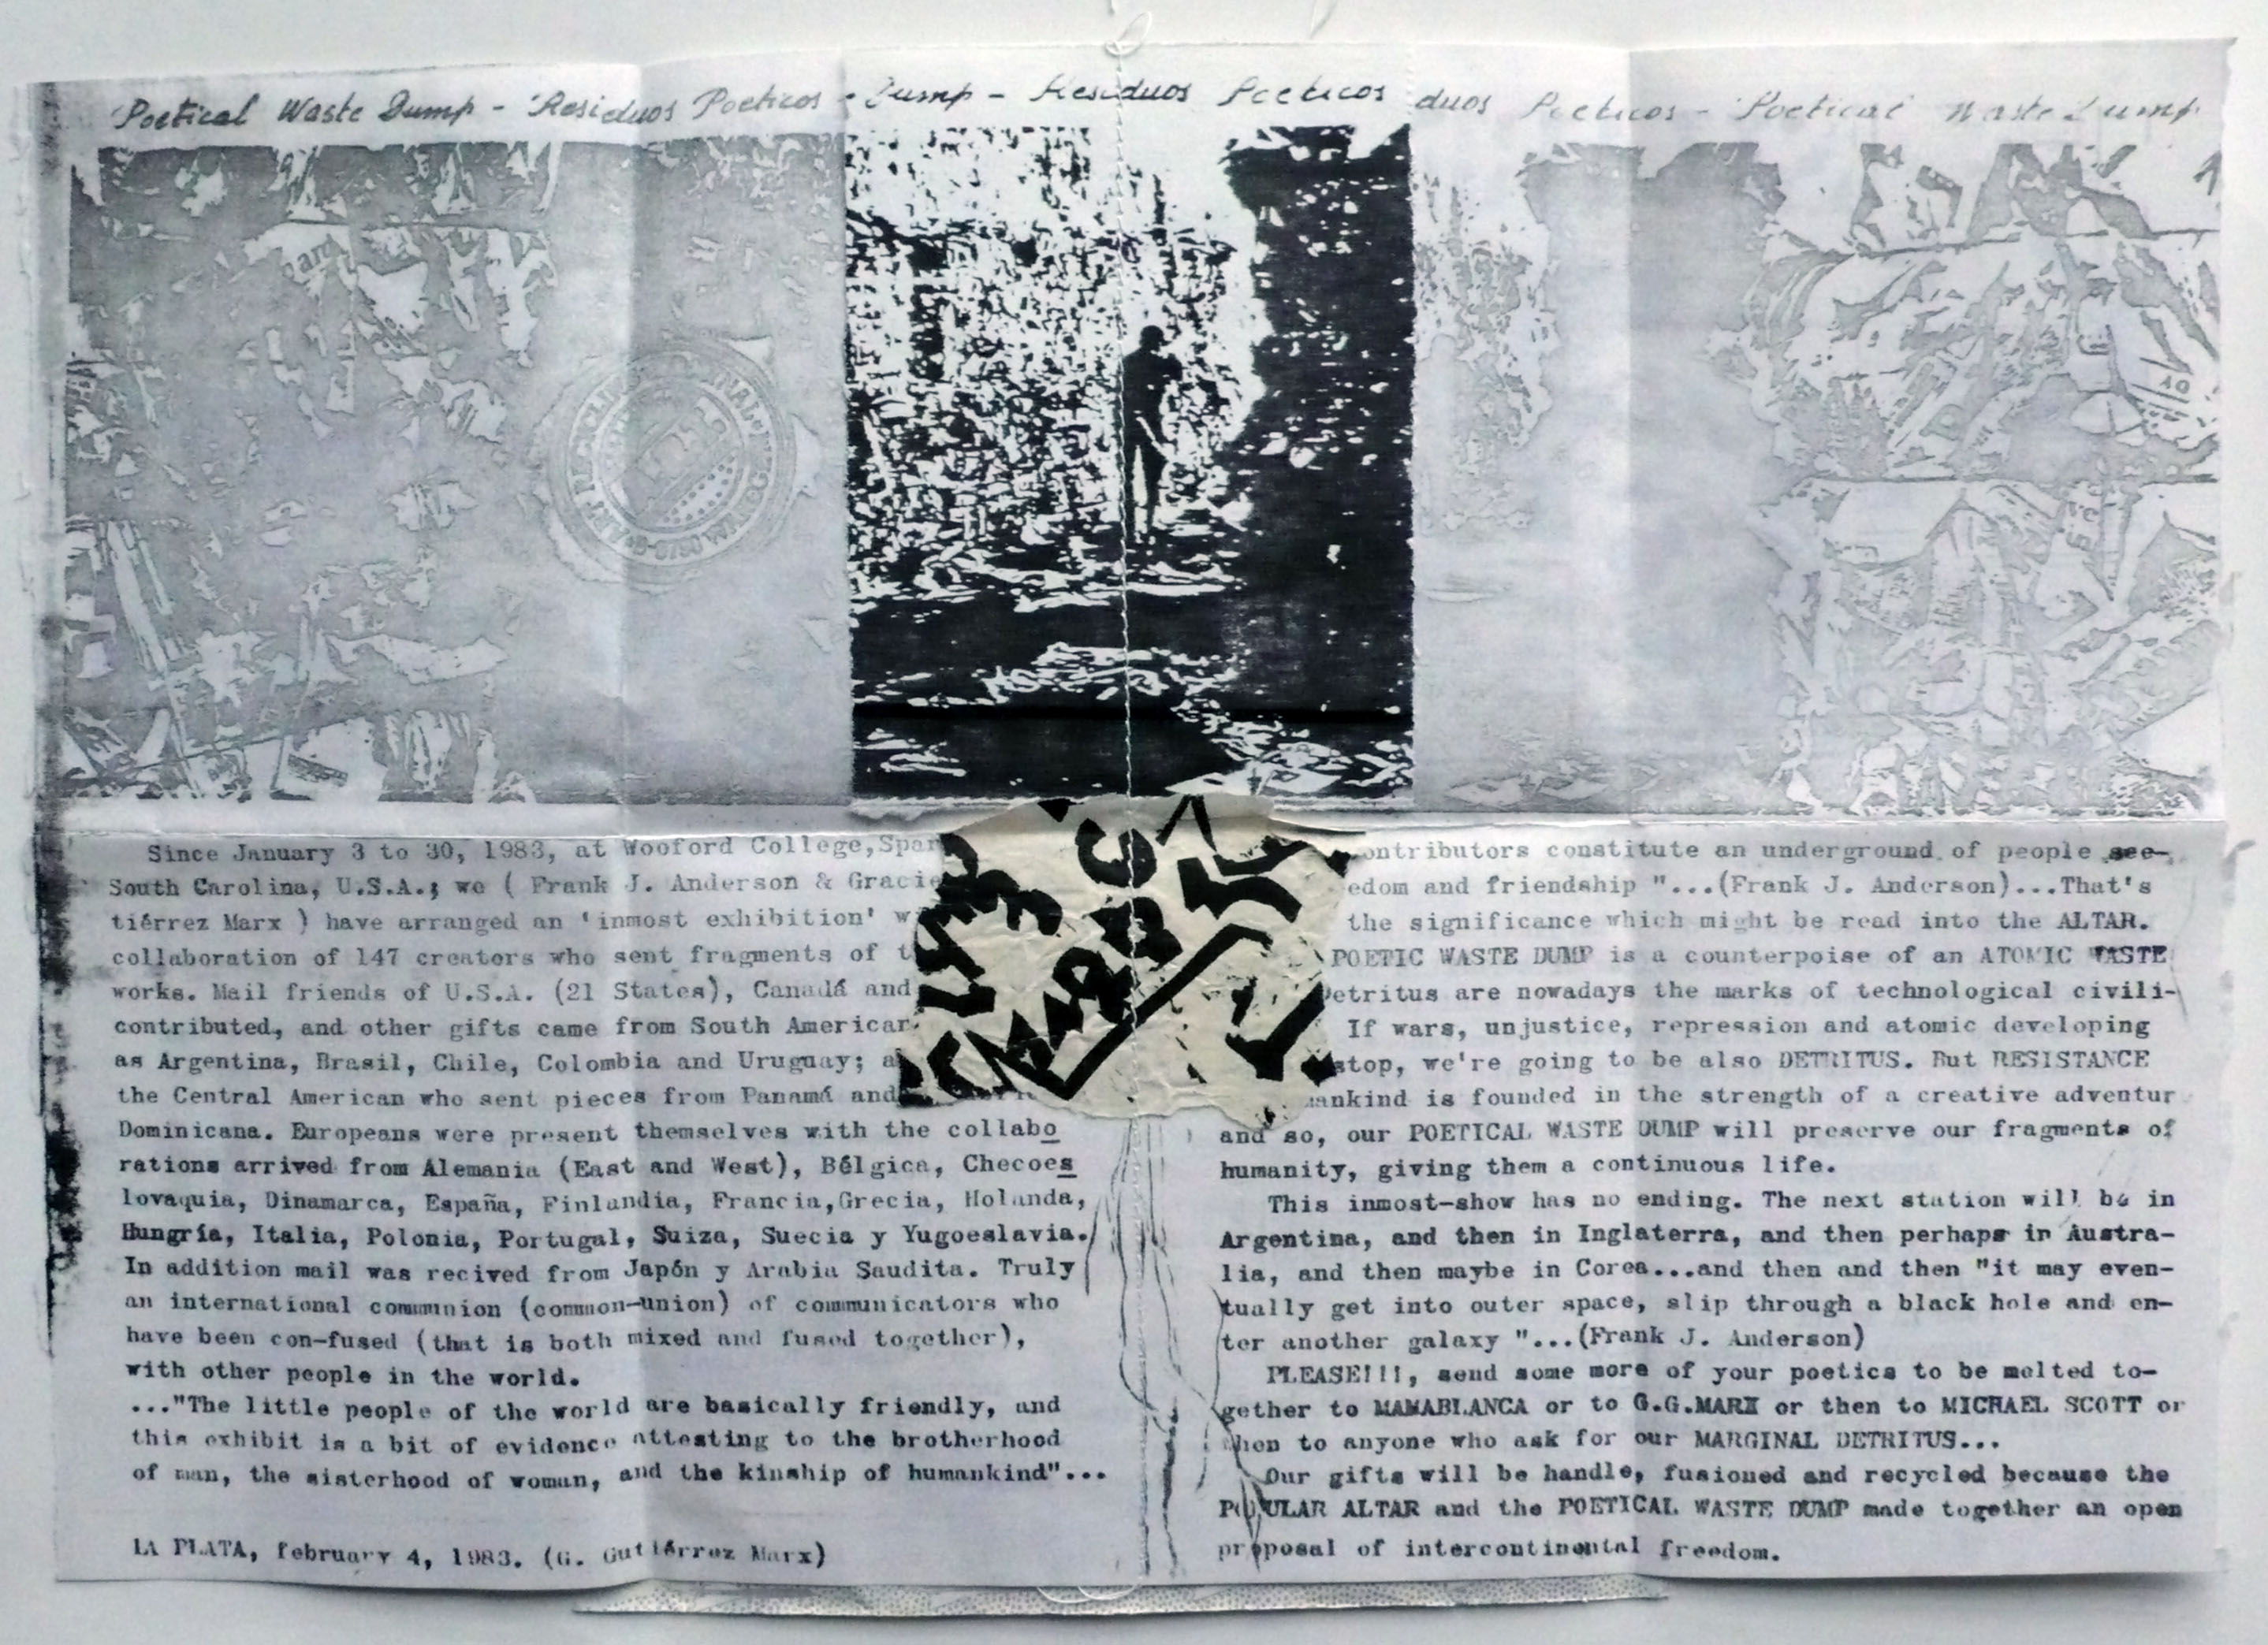 Poetical Waste Dump - Residuos Poeticos - Dump - Residuos Poeticos duos Poeticos - Poetical Waste Dump
Since January 3 to 30, 1983, at Wooford College, Spar
South Carolina, U.S.A.; we ( Frank J. Anderson & Gracie
tiérrez Marx ) have arranged an 'inmost exhibition' w
collaboration of 147 creators who sent fragments of t
works. Mail friends of U.S.A. (21 States), Canadá and
contributed, and other gifts came from South American
as Argentina, Brasil, Chile, Colombia and Uruguay; a
the Central American who sent pieces from Panamá and
Dominicana. Europeans were present themselves with the collabo
rations arrived from Alemania (East and West), Bélgica, Checoes
lovaquia, Dinamarca, España, Finlandia, Francia,Grecia, Holanda,
Hungría, Italia, Polonia, Portugal, Suiza, Suecia y Yugoeslavia.
In addition mail was recived from Japón y Arabia Saudita. Truly
an international communion (common-union) of communicators who
have been con-fused (that is both mixed and fused together),
with other people in the world.
..."The little people of the world are basically friendly, and
this exhibit is a bit of evidence attesting to the brotherhood
of man, the sisterhood of woman, and the kinship of humankind"...
LA PLATA, february 4, 1983. (G. Gutiérrez Marx)
ontributors constitute an underground of people see-
edom and friendship "...(Frank J. Anderson)...That's
the significance which might be read into the ALTAR.
POETIC WASTE DUMP is a counterpoise of an ATOMIC WASTE
etritus are nowadays the marks of technological civili-
If wars, unjustice, repression and atomic developing
stop, we're going to be also DETRITUS. But RESISTANCE
ankind is founded in the strength of a creative adventur
and so, our POETICAL WASTE DUMP will preserve our fragments of
humanity, giving them a continuous life.
This inmost-show has no ending. The next station will be in
Argentina, and then in Inglaterra, and then perhaps in Austra-
lia, and then maybe in Corea...and then and then "it may even-
tually get into outer space, slip through a black hole and en-
ter another galaxy "...(Frank J. Anderson)
PLEASE!!!, send some more of your poetics to be melted to-
gether to MAMABLANCA or to G.G.MARX or then to MICHAEL SCOTT or
then to anyone who ask for our MARGINAL DETRITUS...
Our gifts will be handle, fusioned and recycled because the
POPULAR ALTAR and the POETICAL WASTE DUMP made together an open
proposal of intercontinental freedom.